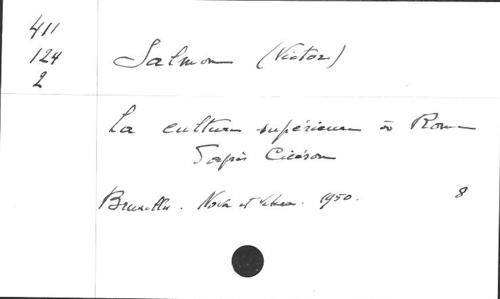 411
124
2
Salmon (Victor)
La culture supérieure à Rome
d'après Cicéron
Bruxelles. Nova et Vetera. 1950. 8